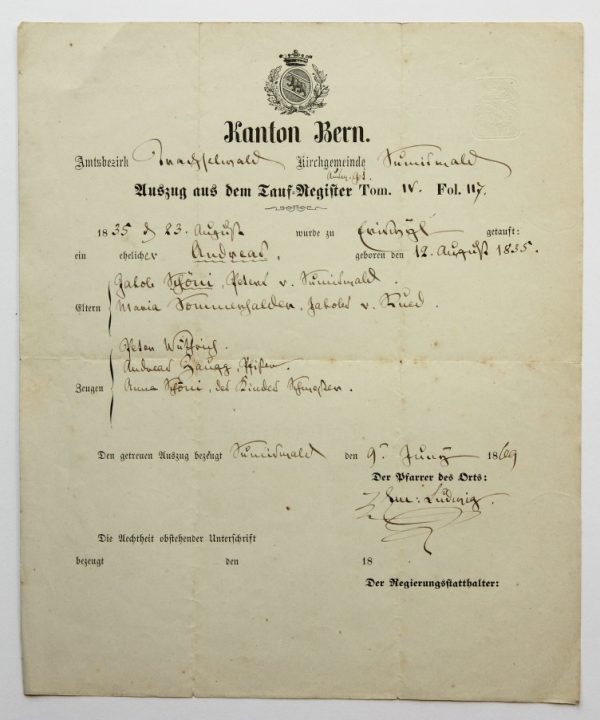 Kanton Bern.
Amtsbezirk Trachselwald Kirchgemeinde Sumiswald
Auszug aus dem Tauf-Register Tom. IV. Fol. 117.
1835 d 23. August wurde zu Eriswyl getauft:
ein ehelicher Andreas, geboren den 12. August 1835.
Eltern
Jakob Schöni, Peters v. Sumiswald.
Maria Sommerhalder, Jakobs v. Rued.
Zeugen
Peter Wüthrich.
Andreas Zaugg, Pfister.
Anna Schöni, des Kindes Schwester.
Den getreuen Auszug bezeugt Sumiswald den 9. Juny 1869
Der Pfarrer des Orts:
Em: Ludwig.
Die Aechtheit obstehender Unterschrift
bezeugt den 18
Der Regierungsstatthalter: